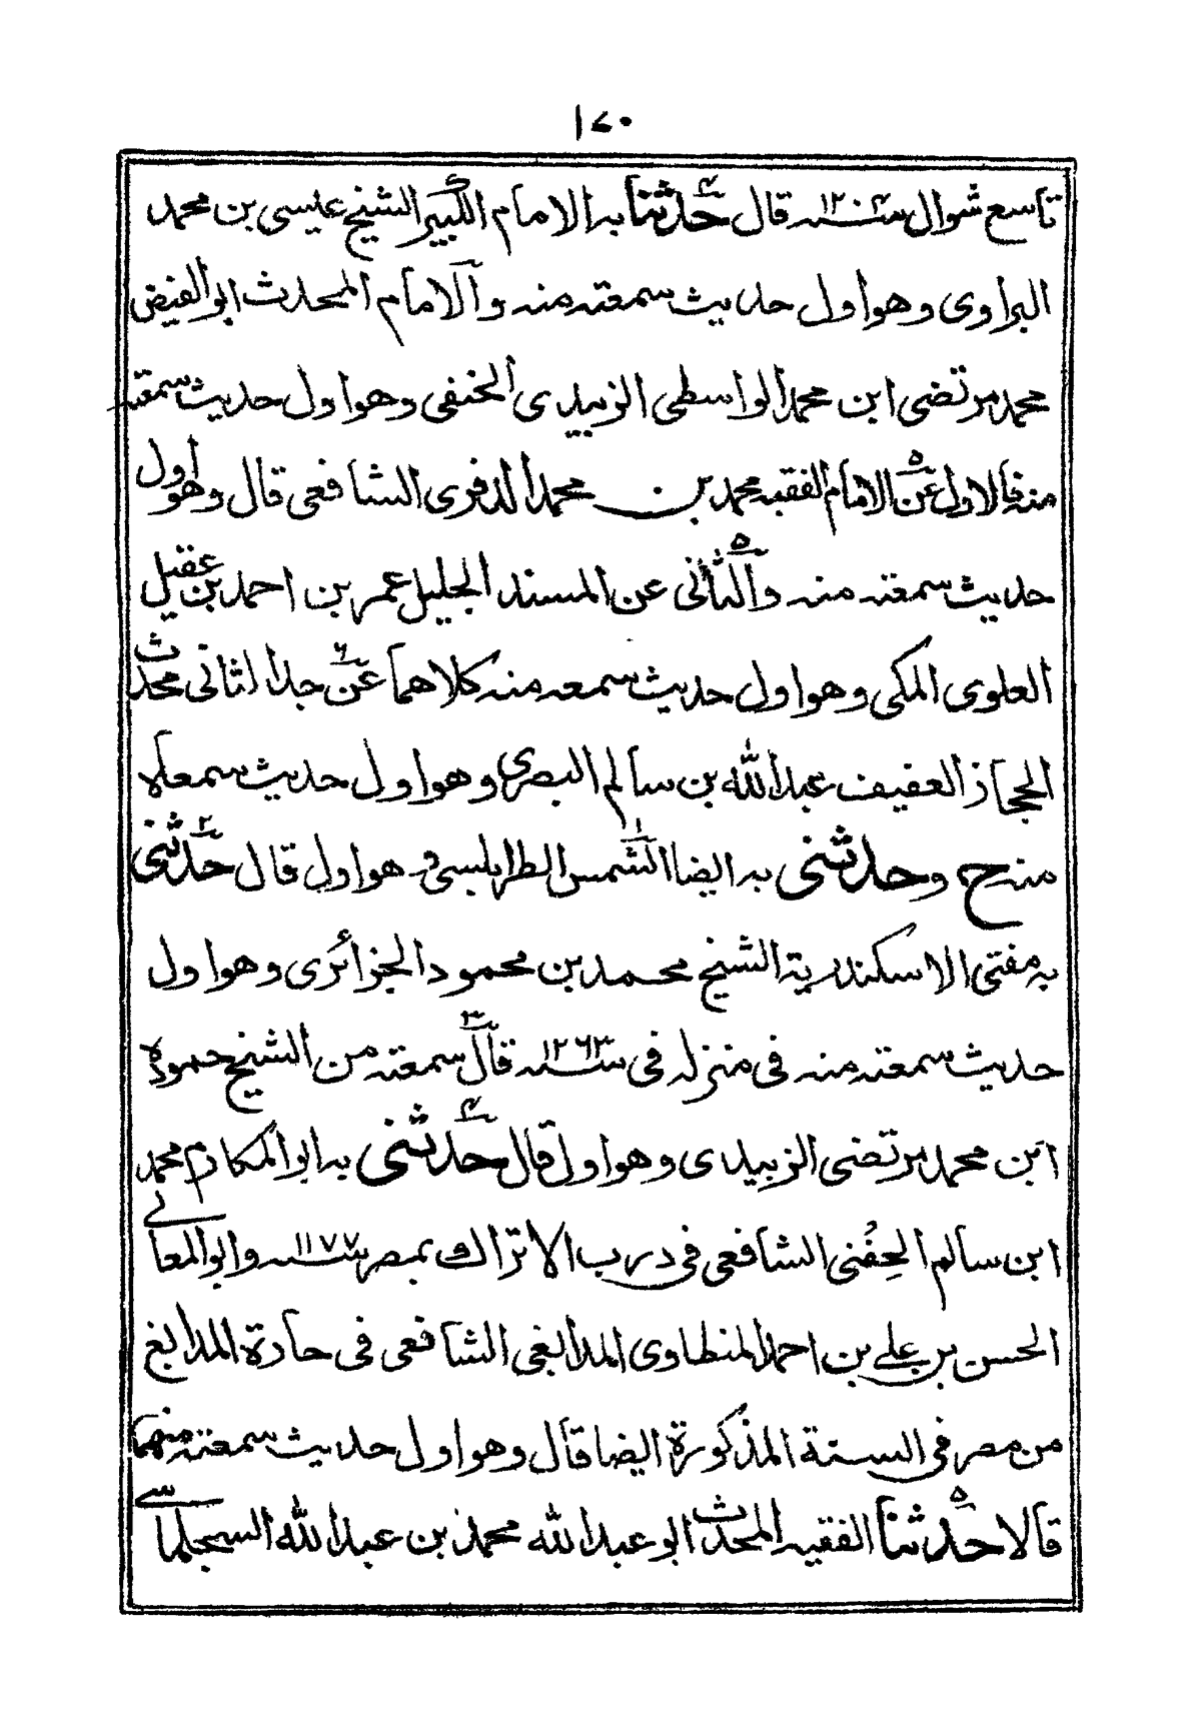 ١٧٠
تاسع شوال سنة ١٢٠٤ قال حدثنا به الامام الكبير الشيخ عيسى بن محمد
البراوى وهو اول حديث سمعته منه والامام المحدث ابو الفيض
محمد مرتضى ابن محمد الواسطى الزبيدى الحنفى وهو اول حديث سمعته
منه فالاول عن الامام الفقيه محمد بن محمد الدفرى الشافعى قال وهو اول
حديث سمعته منه والثانى عن المسند الجليل عمر بن احمد بن عقيل
العلوى المكى وهو اول حديث سمعه منه كلاهما عن جد الثانى محدث
الحجاز العفيف عبد الله بن سالم البصرى وهو اول حديث سمعاه
منه ح وحدثنى به ايضا الشمس الطرابلسى وهو اول قال حدثنى
به مفتى الاسكندرية الشيخ محمد بن محمود الجزائرى وهو اول
حديث سمعته منه فى منزله فى سنة ١٢٦٣ قال سمعته من الشيخ حموده
ابن محمد مرتضى الزبيدى وهو اول قال حدثنى به ابو المكارم محمد
ابن سالم الحفنى الشافعى فى درب الاتراك بمصر سنة ١١٧٧ وابو المعالى
الحسن بن على بن احمد المنطاوى المدابغى الشافعى فى حارة المدابغ
من مصر فى السنة المذكورة ايضا قال وهو اول حديث سمعته منهما
قالا حدثنا الفقيه المحدث ابو عبد الله محمد بن عبد الله السجلماسى